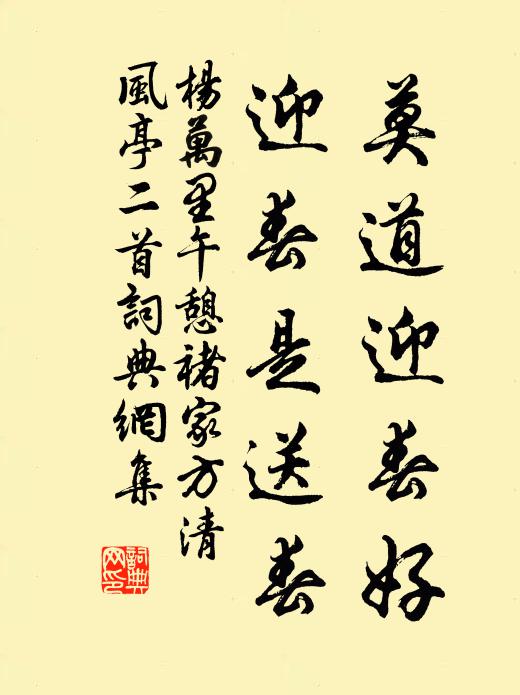 莫道迎春好
迎春是送春
楊萬里午憩褚家方清
風亭二首詞典網集
詞典
网印